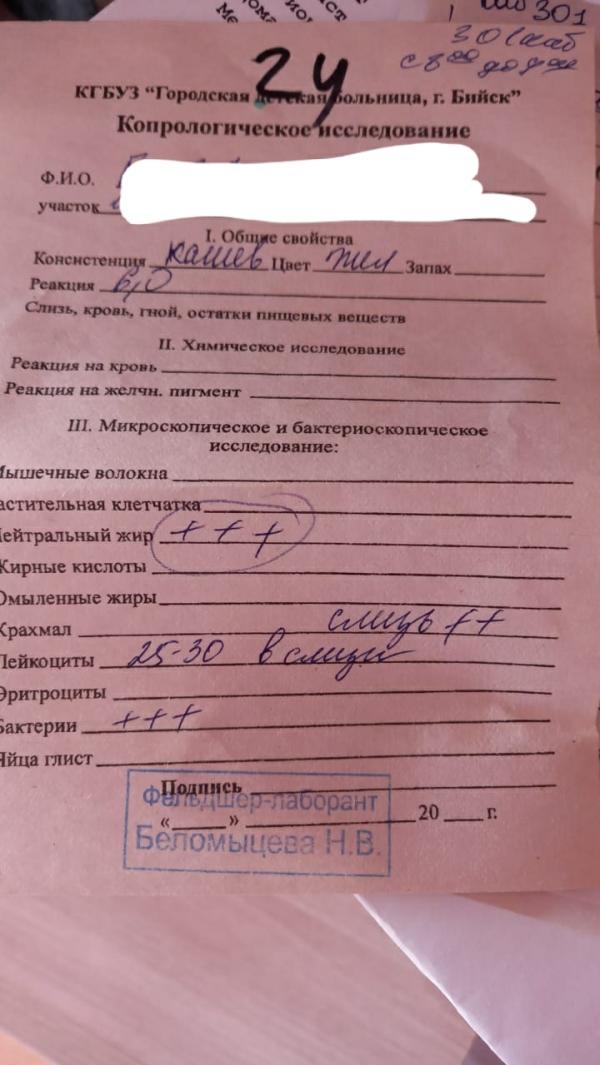 301
301 каб
24
КГБУЗ “Городская детская больница, г. Бийск”
Копрологическое исследование
Ф.И.О.
участок
I. Общие свойства
Консистенция кашев Цвет жел Запах
Реакция 6,0
Слизь, кровь, гной, остатки пищевых веществ
II. Химическое исследование
Реакция на кровь
Реакция на желчн. пигмент
III. Микроскопическое и бактериоскопическое
исследование:
Мышечные волокна
астительная клетчатка
Нейтральный жир +++
Жирные кислоты
Омыленные жиры
Крахмал слизь ++
Лейкоциты 25-30 в слизи
Эритроциты
Бактерии +++
Яйца глист
Подпись
Фельдшер-лаборант
« » 20 г.
Беломыцева Н.В.